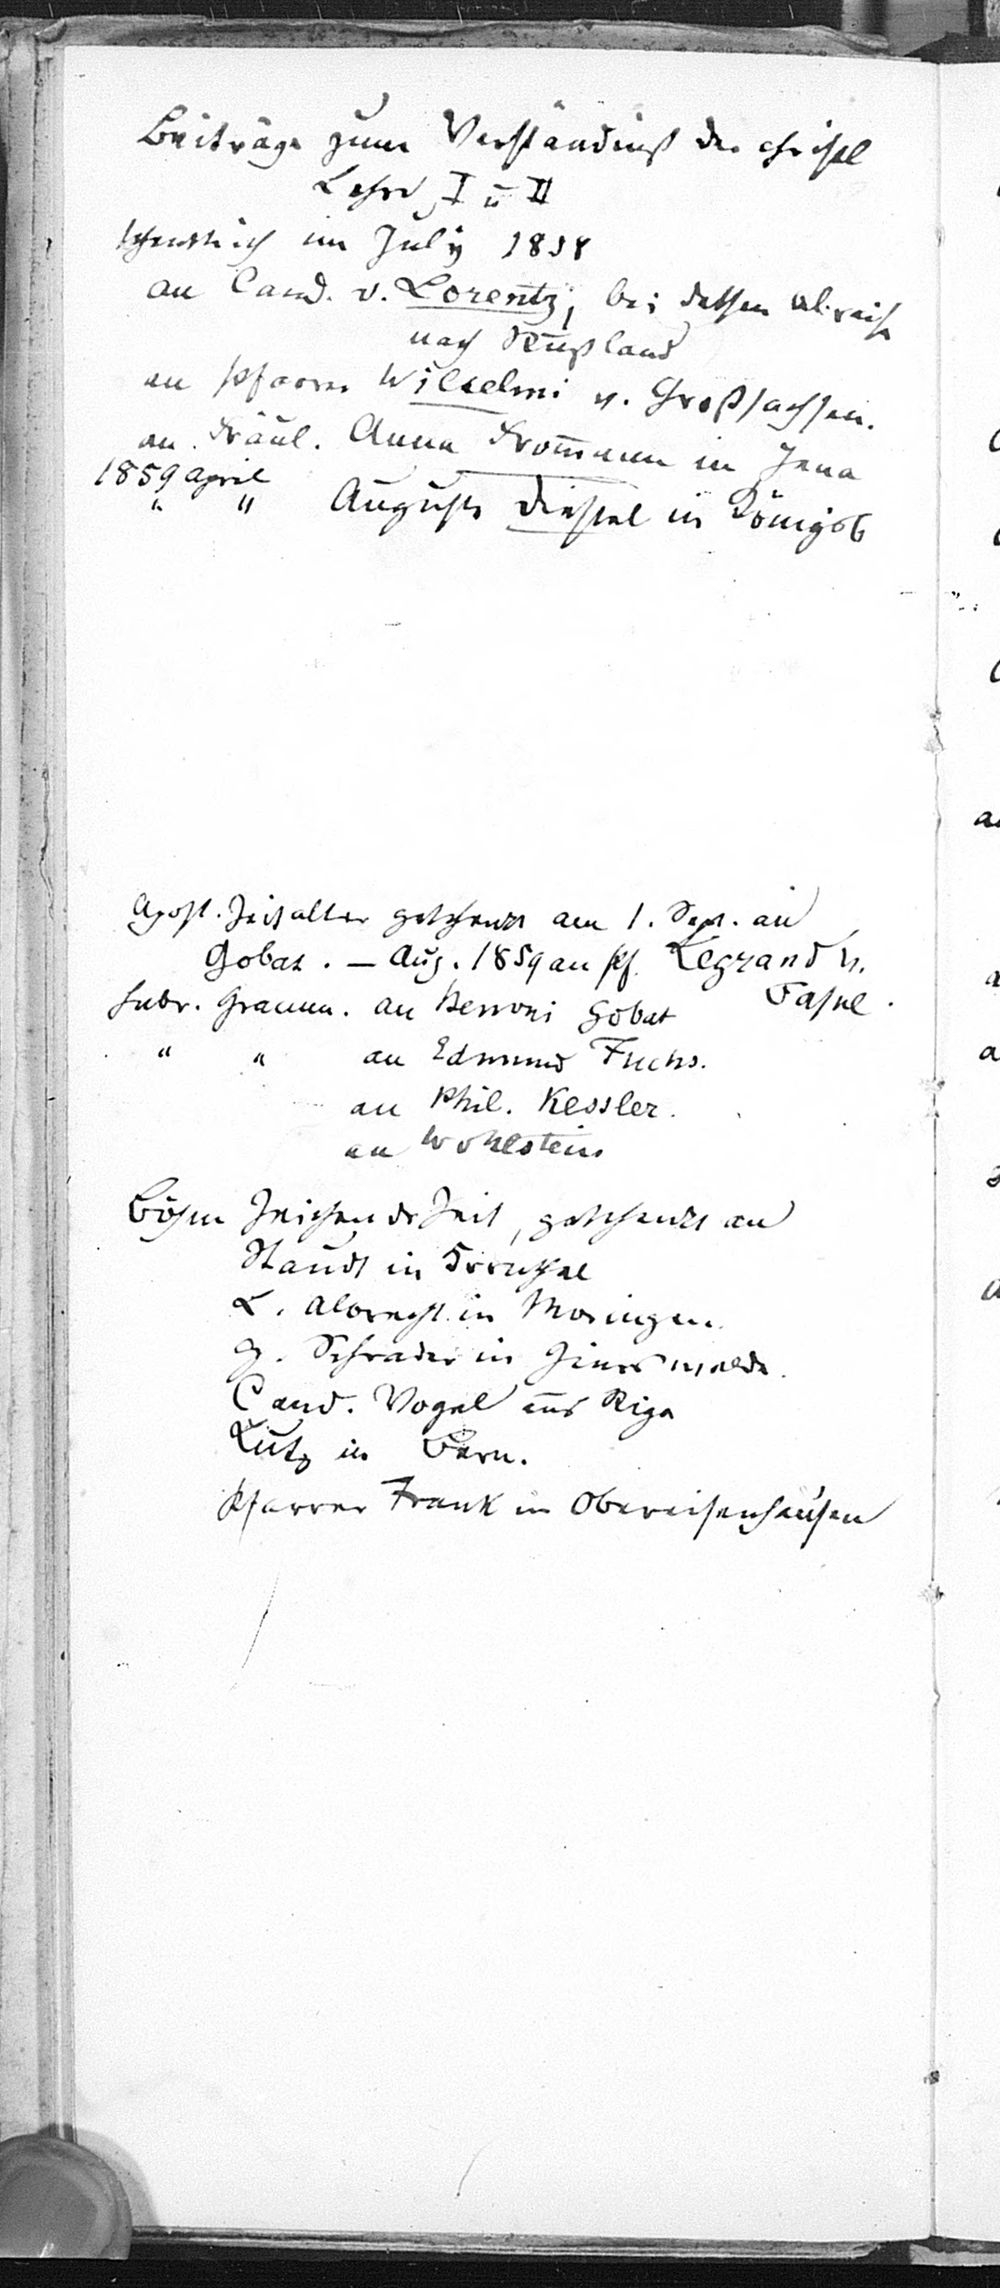 Beiträge zum Verständniß der christl
Lehre, I u II
schenkte ich im July 1858
an Cand. v. Lorentz, bei dessen Abreise
nach Rußland
an Pfarrer Wilhelmi v. Großsachsen.
an Fräul. Anna Frommann in Jena
1859 April
" " Auguste Diestel in Königsb
Apost. Zeitalter geschenkt am 1. Sept. an
Gobat. – Aug. 1859 an Pf. Legrand v.
Basel.
Hebr. Gramm. an Benoni Gobat
" " an Edmund Fuchs.
an Phil. Kessler.
an Wohlstein
Böhm Zeichen dr Zeit, geschenkt an
Staudt in Kornthal
L. Albrecht in Moringen.
G. Schrader in
Cand. Vogel aus Riga
Lutz in Bern.
Pfarrer Frank in Obereisenhausen